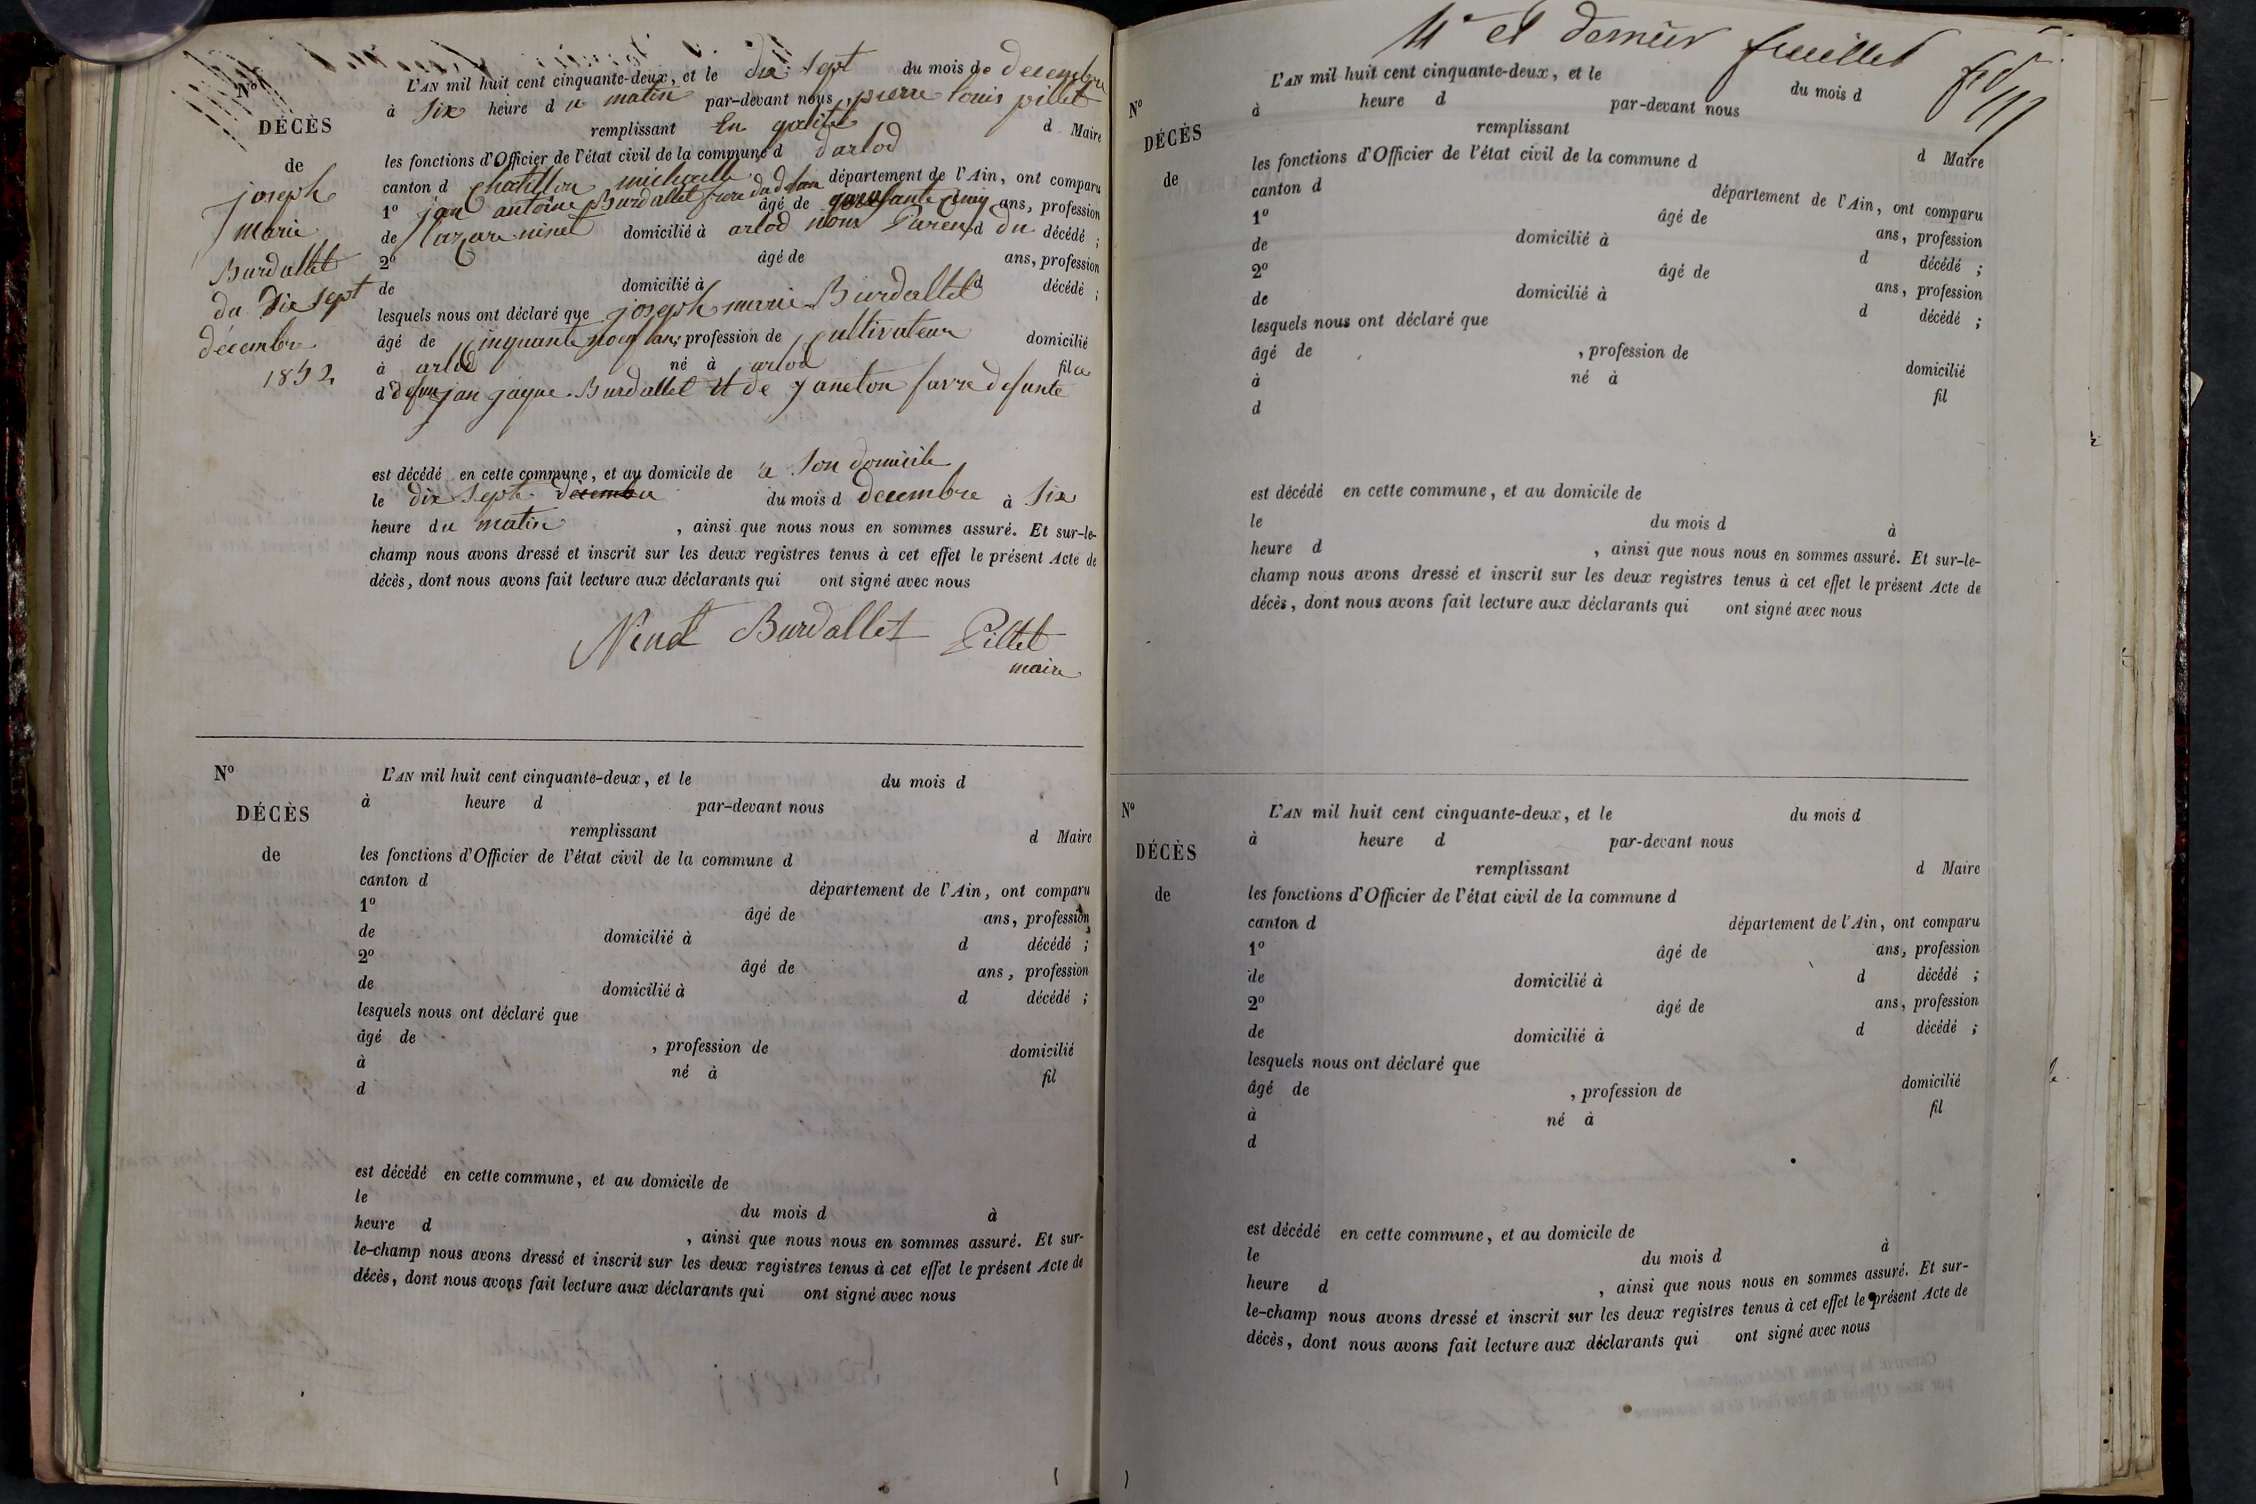 N°
DÉCÈS
de
joseph
marie
Burdallet
du dix sept
décembre
1852
L'AN mil huit cent cinquante-deux, et le dix sept du mois de decembre
à six heure du matin par-devant nous, pierre louis pillet
remplissant En qalité d Maire
les fonctions d'Officier de l'état civil de la commune d darlod
canton d chatillon michaille département de l'Ain, ont comparu
1° jan antoine Burdallet frere âgé de cinq ans, profession
de lazare ninet domicilié à arlod Parend du décédé ;
2° âgé de ans, profession
de domicilié à d décédé ;
lesquels nous ont déclaré que joseph marie Burdallet
âgé de cinquante ans, profession de cultivateur domicilié
à arlod né à arlod fil
d defun jan jaque Burdallet Et de janeton favre defunte
est décédé en cette commune, et au domicile de a son domicile
le dix sept decembre du mois d decembre à six
heure du matin , ainsi que nous nous en sommes assuré. Et sur-le-
champ nous avons dressé et inscrit sur les deux registres tenus à cet effet le présent Acte de
décès, dont nous avons fait lecture aux déclarants qui ont signé avec nous
Ninet Burdallet Pillet
maire
N°
DÉCÈS
de
L'AN mil huit cent cinquante-deux, et le du mois d
à heure d par-devant nous
remplissant d Maire
les fonctions d'Officier de l'état civil de la commune d
canton d département de l'Ain, ont comparu
1° âgé de ans, profession
de domicilié à d décédé ;
2° âgé de ans, profession
de domicilié à d décédé ;
lesquels nous ont déclaré que
âgé de , profession de domicilié
à né à fil
d
est décédé en cette commune, et au domicile de
le du mois d à
heure d , ainsi que nous nous en sommes assuré. Et sur-
le-champ nous avons dressé et inscrit sur les deux registres tenus à cet effet le présent Acte de
décès, dont nous avons fait lecture aux déclarants qui ont signé avec nous
11e et dernier feuillet
N°
DÉCÈS
de
L'AN mil huit cent cinquante-deux, et le du mois d
à heure d par-devant nous
remplissant d Maire
les fonctions d'Officier de l'état civil de la commune d
canton d département de l'Ain, ont comparu
1° âgé de ans, profession
de domicilié à d décédé ;
2° âgé de ans, profession
de domicilié à d décédé ;
lesquels nous ont déclaré que
âgé de , profession de domicilié
à né à fil
d
est décédé en cette commune, et au domicile de
le du mois d à
heure d , ainsi que nous nous en sommes assuré. Et sur-le-
champ nous avons dressé et inscrit sur les deux registres tenus à cet effet le présent Acte de
décès, dont nous avons fait lecture aux déclarants qui ont signé avec nous
N°
DÉCÈS
de
L'AN mil huit cent cinquante-deux, et le du mois d
à heure d par-devant nous
remplissant d Maire
les fonctions d'Officier de l'état civil de la commune d
canton d département de l'Ain, ont comparu
1° âgé de ans, profession
de domicilié à d décédé ;
2° âgé de ans, profession
de domicilié à d décédé ;
lesquels nous ont déclaré que
âgé de , profession de domicilié
à né à fil
d
est décédé en cette commune, et au domicile de
le du mois d à
heure d , ainsi que nous nous en sommes assuré. Et sur-
le-champ nous avons dressé et inscrit sur les deux registres tenus à cet effet le présent Acte de
décès, dont nous avons fait lecture aux déclarants qui ont signé avec nous